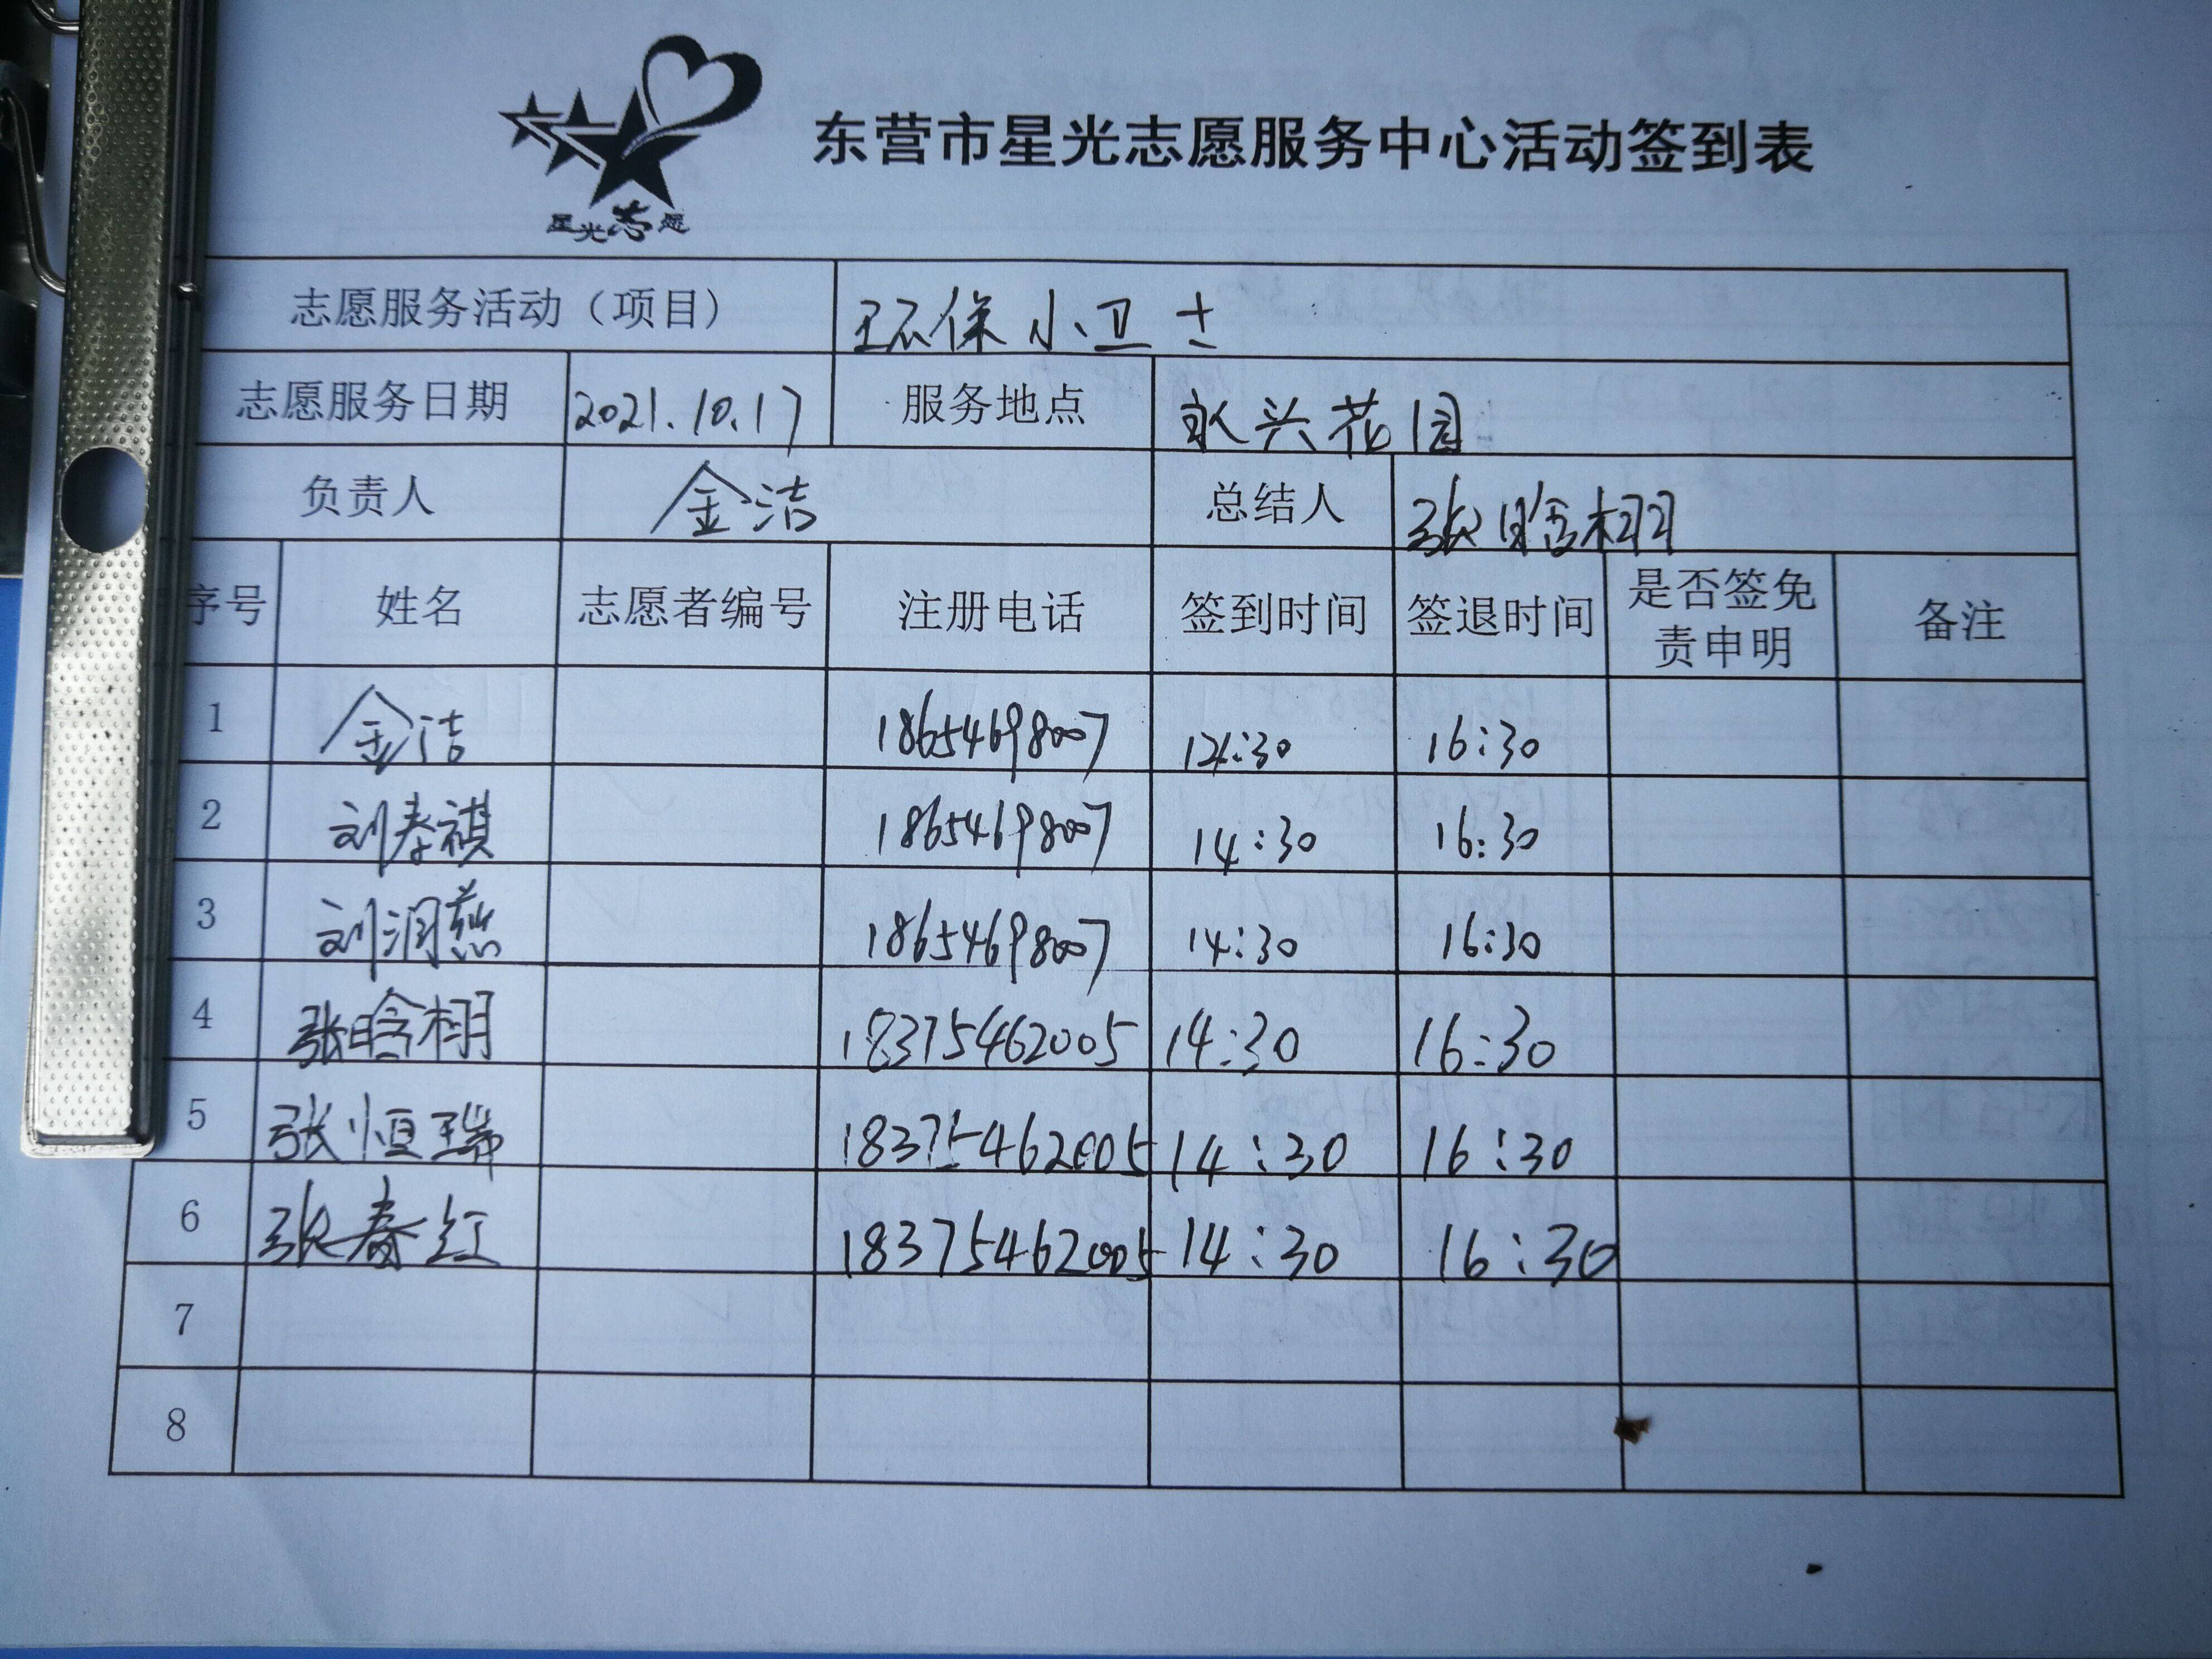 星光志愿
东营市星光志愿服务中心活动签到表
志愿服务活动（项目） 环保小卫士
志愿服务日期 2021.10.17 服务地点 永兴花园
负责人 金洁 总结人 张晗栩
序号 姓名 志愿者编号 注册电话 签到时间 签退时间 是否签免责申明 备注
1 金洁 18654698007 14:30 16:30
2 刘春祺 18654698007 14:30 16:30
3 刘润燕 18654698007 14:30 16:30
4 张晗栩 18375462005 14:30 16:30
5 张恒瑞 18375462005 14:30 16:30
6 张春红 18375462005 14:30 16:30
7
8